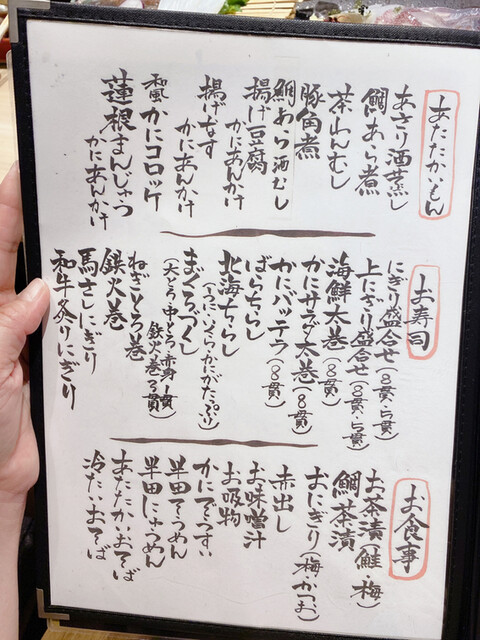 あたたかいもん
あさり酒蒸し
鯛あら煮
茶わんむし
豚角煮
鯛あら酒むし
揚げ豆腐
かにあんかけ
揚げなす
かにあんかけ
和風かにコロッケ
蓮根まんじゅう
かにあんかけ
お寿司
にぎり盛合せ(8貫・5貫)
上にぎり盛合せ(8貫・5貫)
海鮮太巻(8貫)
かにサラダ太巻(8貫)
かにバッテラ(8貫)
ばらちらし
北海ちらし
(うに・いくら・かにがたっぷり)
まぐろづくし
(大とろ中とろ・赤身1貫
鉄火巻3貫)
ねぎとろ巻
鉄火巻
馬さしにぎり
和牛炙りにぎり
お食事
お茶漬(鮭・梅)
鯛茶漬
おにぎり(梅・かつお)
赤出し
お味噌汁
お吸物
かにぞうすい
半田そうめん
半田にゅうめん
あたたかいおそば
冷たいおそば